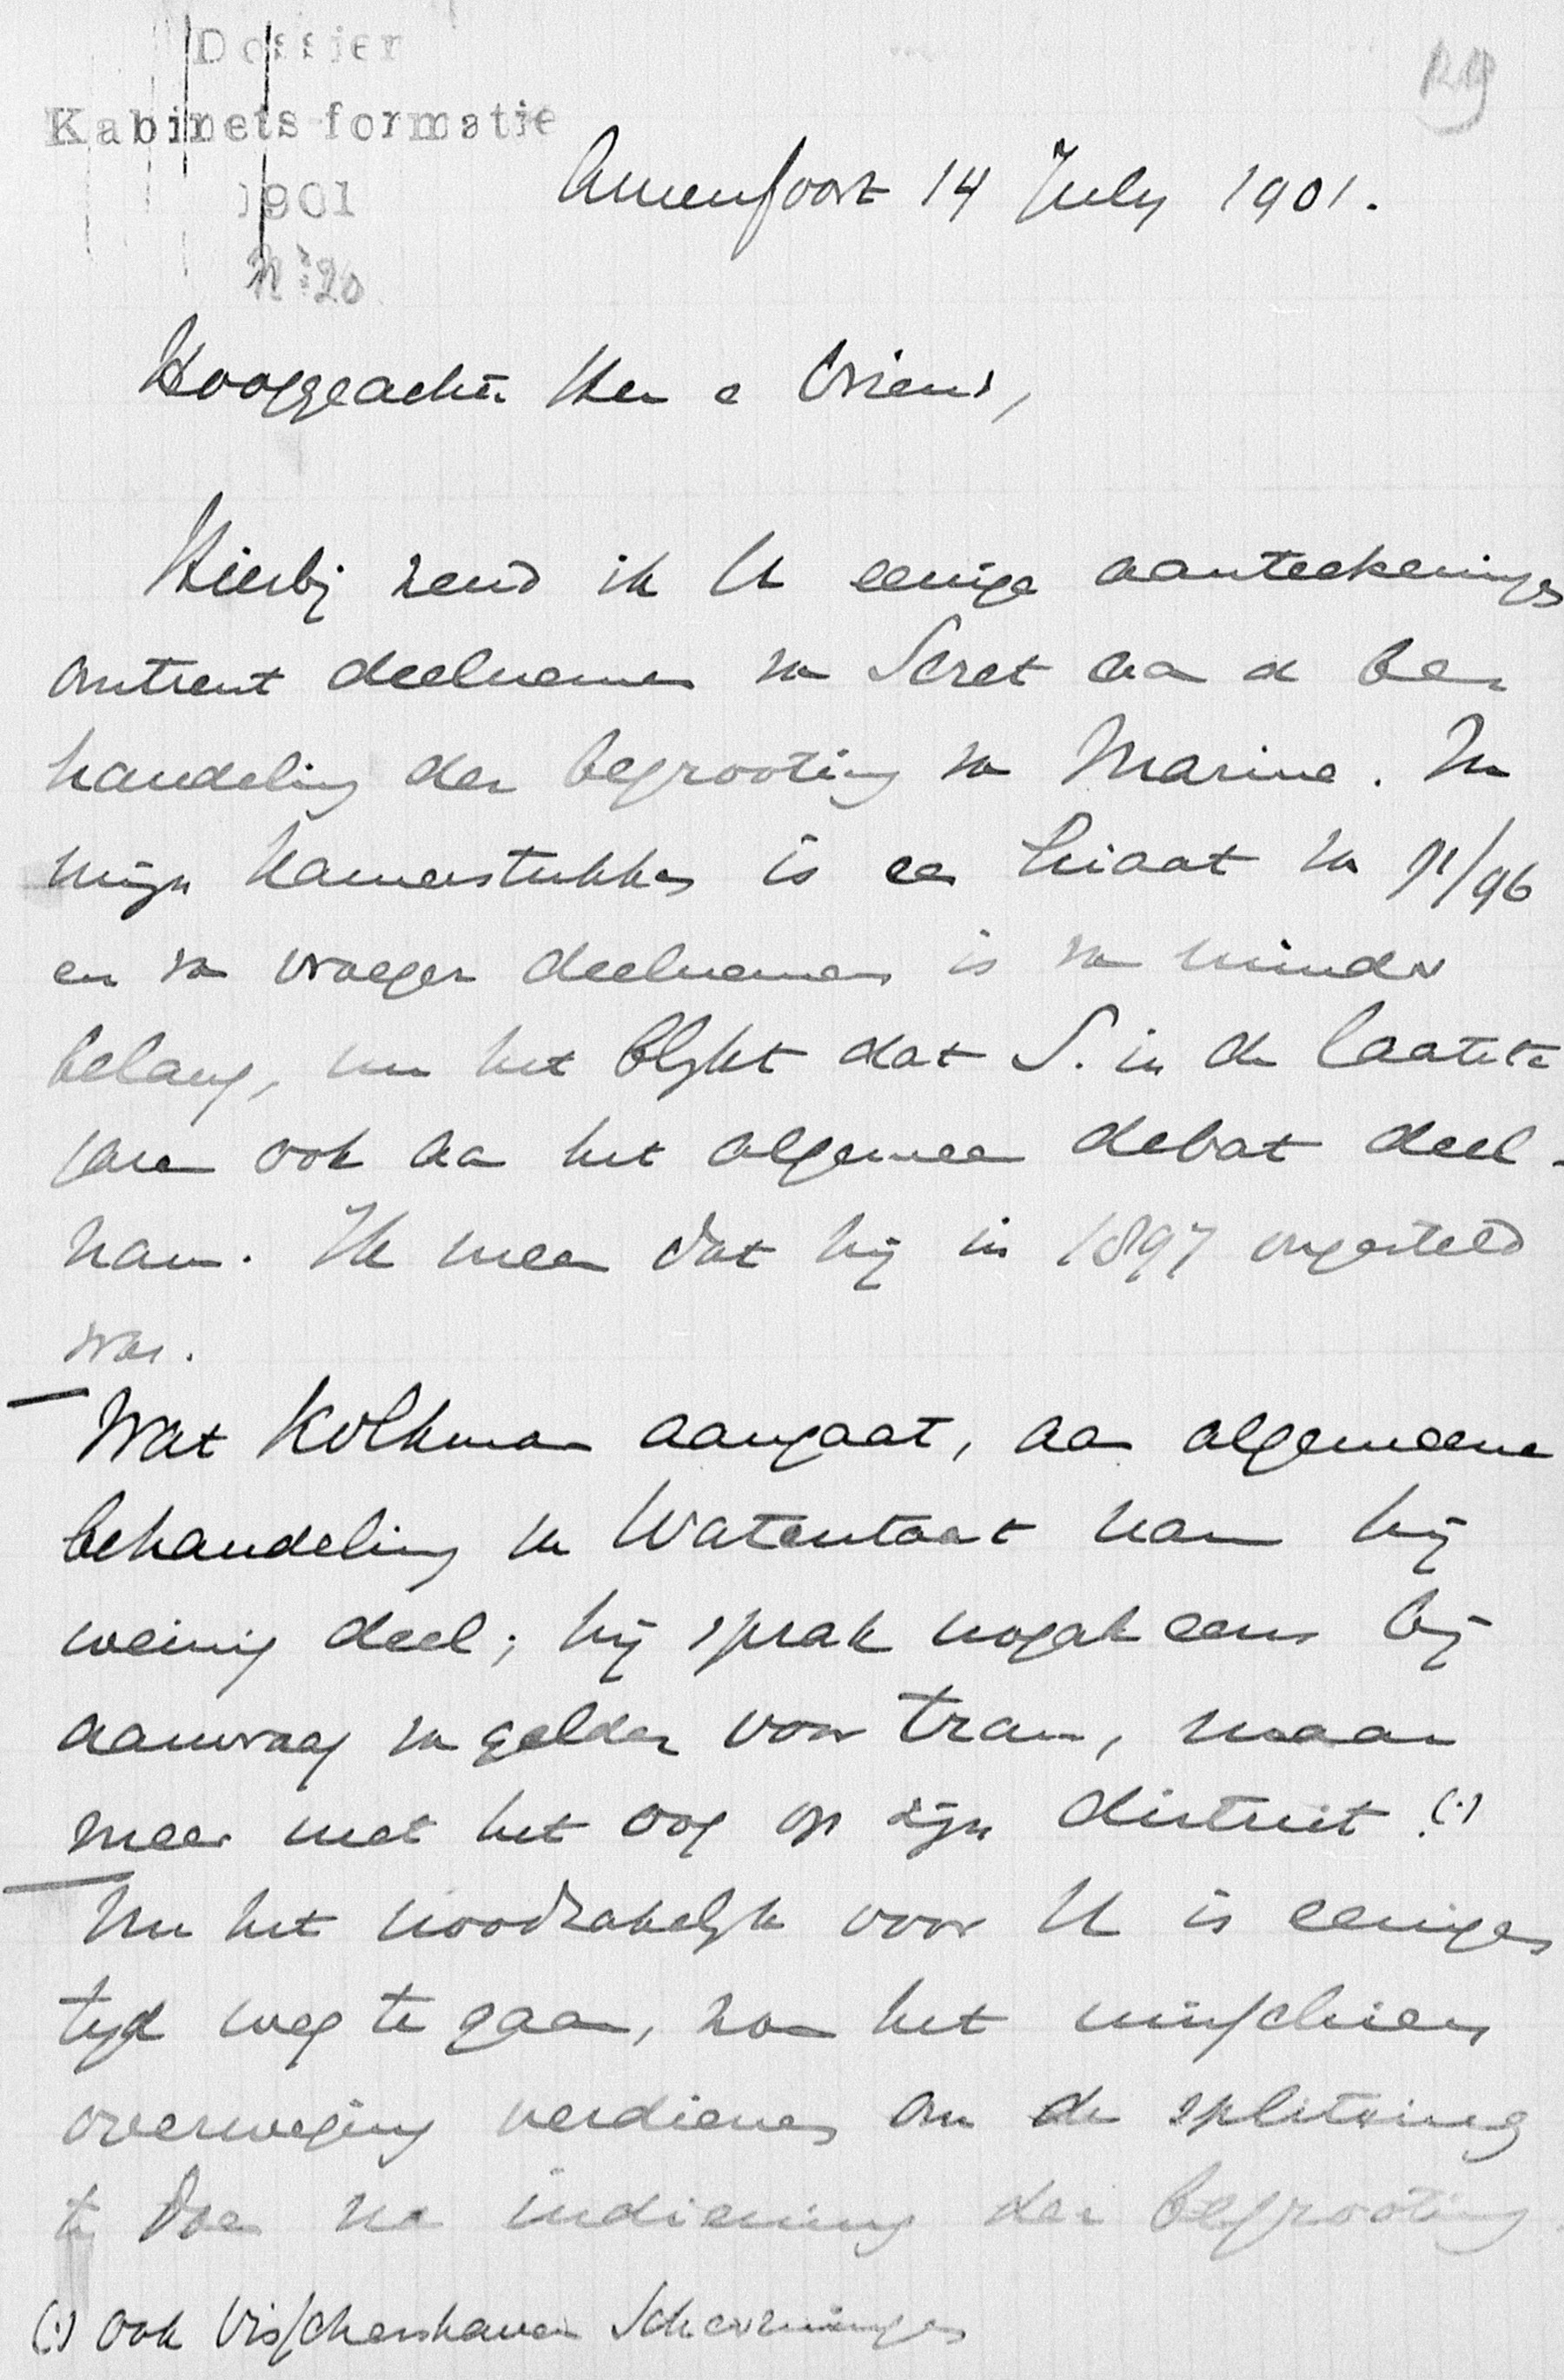 Dossier
Kabinetsformatie
1901
No 20
Amersfoort 14 July 1901.
Hooggeachte Heer e Vriend,
Hierbij zend ik U eenige aanteekeningen
omtrent deelnemen van Seret aan de be
handeling der begrooting van Marine. In
mijn Kamerstukken is een hiaat van 91/96
en van vroeger deelnemen is van minder
belang, nu het blijkt dat S. in de laatste
jaren ook aan het algemeen debat deel-
nam. Ik meen dat hij in 1897 ongesteld
was.
Wat Kolkman aangaat, aan algemeene
behandeling van Waterstaat nam hij
weinig deel; hij sprak nogal eens bij
aanvraag van gelden voor tram, maar
meer met het oog op zijn district. (·)
Nu het noodzakelijk voor U is eenigen
tijd weg te gaan, zou het misschien
overweging verdienen om de splitsing
te doen na indiening der begrooting
(·) ook Visschershaven Scheveningen